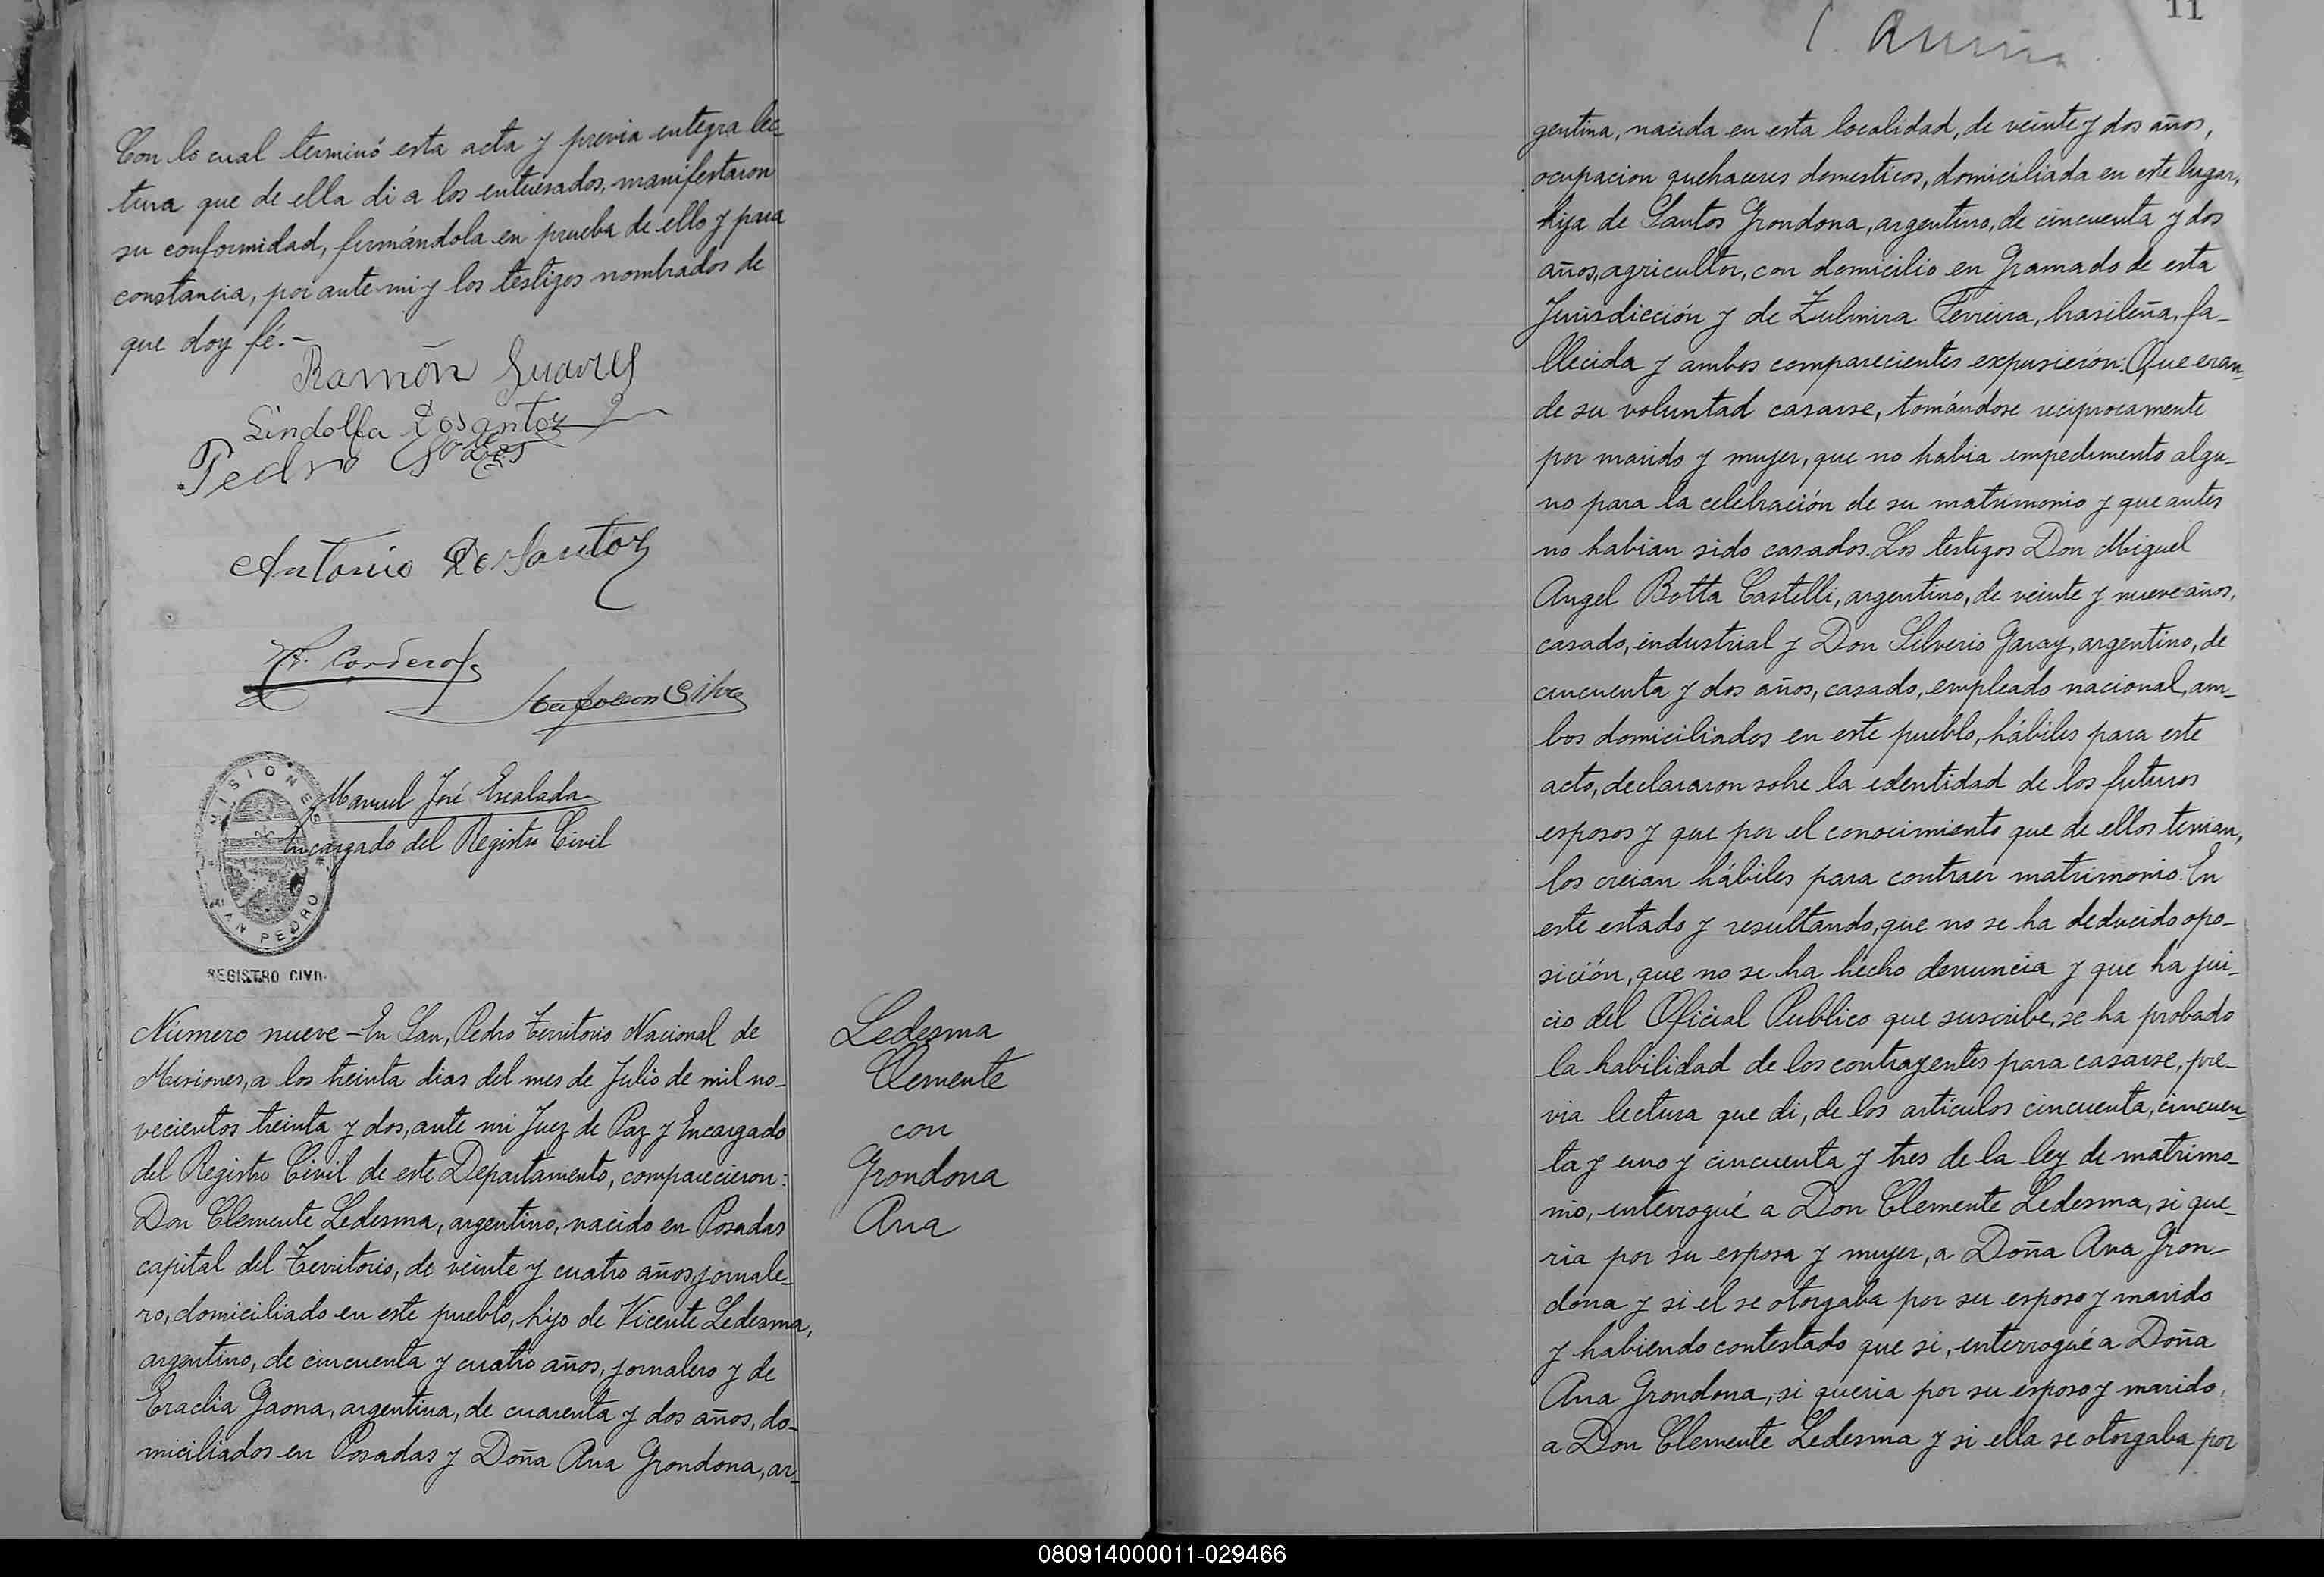 Con lo cual terminó esta acta y previa integra lec-
tura que de ella di a los interesados, manifestaron
su conformidad, firmándola en prueba de ello y para
constancia, por ante mi y los testigos nombrados de
que doy fé.-
Ramón Suares
Lindolfa Dosantos
Pedro
Antonio De Santos
Cordero
Silva
MISIONES
SAN PEDRO
REGISTRO CIVIL
Manuel José Escalada
Encargado del Registro Civil
Número nueve - En San Pedro Territorio Nacional de
Misiones, a los treinta dias del mes de Julio de mil no-
vecientos treinta y dos, ante mi Juez de Paz y Encargado
del Registro Civil de este Departamento, comparecieron:
Don Clemente Ledesma, argentino, nacido en Posadas
capital del Territorio, de veinte y cuatro años, jornale-
ro, domiciliado en este pueblo, hijo de Vicente Ledesma,
argentino, de cincuenta y cuatro años, jornalero y de
Eraclia Gaona, argentina, de cuarenta y dos años, do-
miciliados en Posadas y Doña Ana Grondona, ar-
Ledesma
Clemente
con
Grondona
Ana
11
gentina, nacida en esta localidad, de veinte y dos años,
ocupacion quehaceres domesticos, domiciliada en este lugar,
hija de Santos Grondona, argentino, de cincuenta y dos
años, agricultor, con domicilio en Gramado de esta
Jurisdicción y de Zulmira Ferreira, brasileña, fa-
llecida y ambos comparecientes expusieron: Que eran
de su voluntad casarse, tomándose reciprocamente
por marido y mujer, que no habia impedimento algu-
no para la celebración de su matrimonio y que antes
no habian sido casados. Los testigos Don Miguel
Angel Botta Castelli, argentino, de veinte y nueve años,
casado, industrial y Don Silverio Garay, argentino, de
cincuenta y dos años, casado, empleado nacional, am-
bos domiciliados en este pueblo, hábiles para este
acto, declararon sobre la identidad de los futuros
esposos y que por el conocimiento que de ellos tenian,
los creian hábiles para contraer matrimonio. En
este estado y resultando, que no se ha deducido opo-
sición, que no se ha hecho denuncia y que ha jui-
cio del Oficial Publico que suscribe, se ha probado
la habilidad de los contrayentes para casarse, pre-
via lectura que di, de los artículos cincuenta, cincuen-
ta y uno y cincuenta y tres de la ley de matrimo-
nio, interrogué a Don Clemente Ledesma, si que-
ria por su esposa y mujer, a Doña Ana Gron-
dona y si el se otorgaba por su esposo y marido
y habiendo contestado que si, interrogué a Doña
Ana Grondona, si queria por su esposo y marido,
a Don Clemente Ledesma y si ella se otorgaba por
080914000011-029466